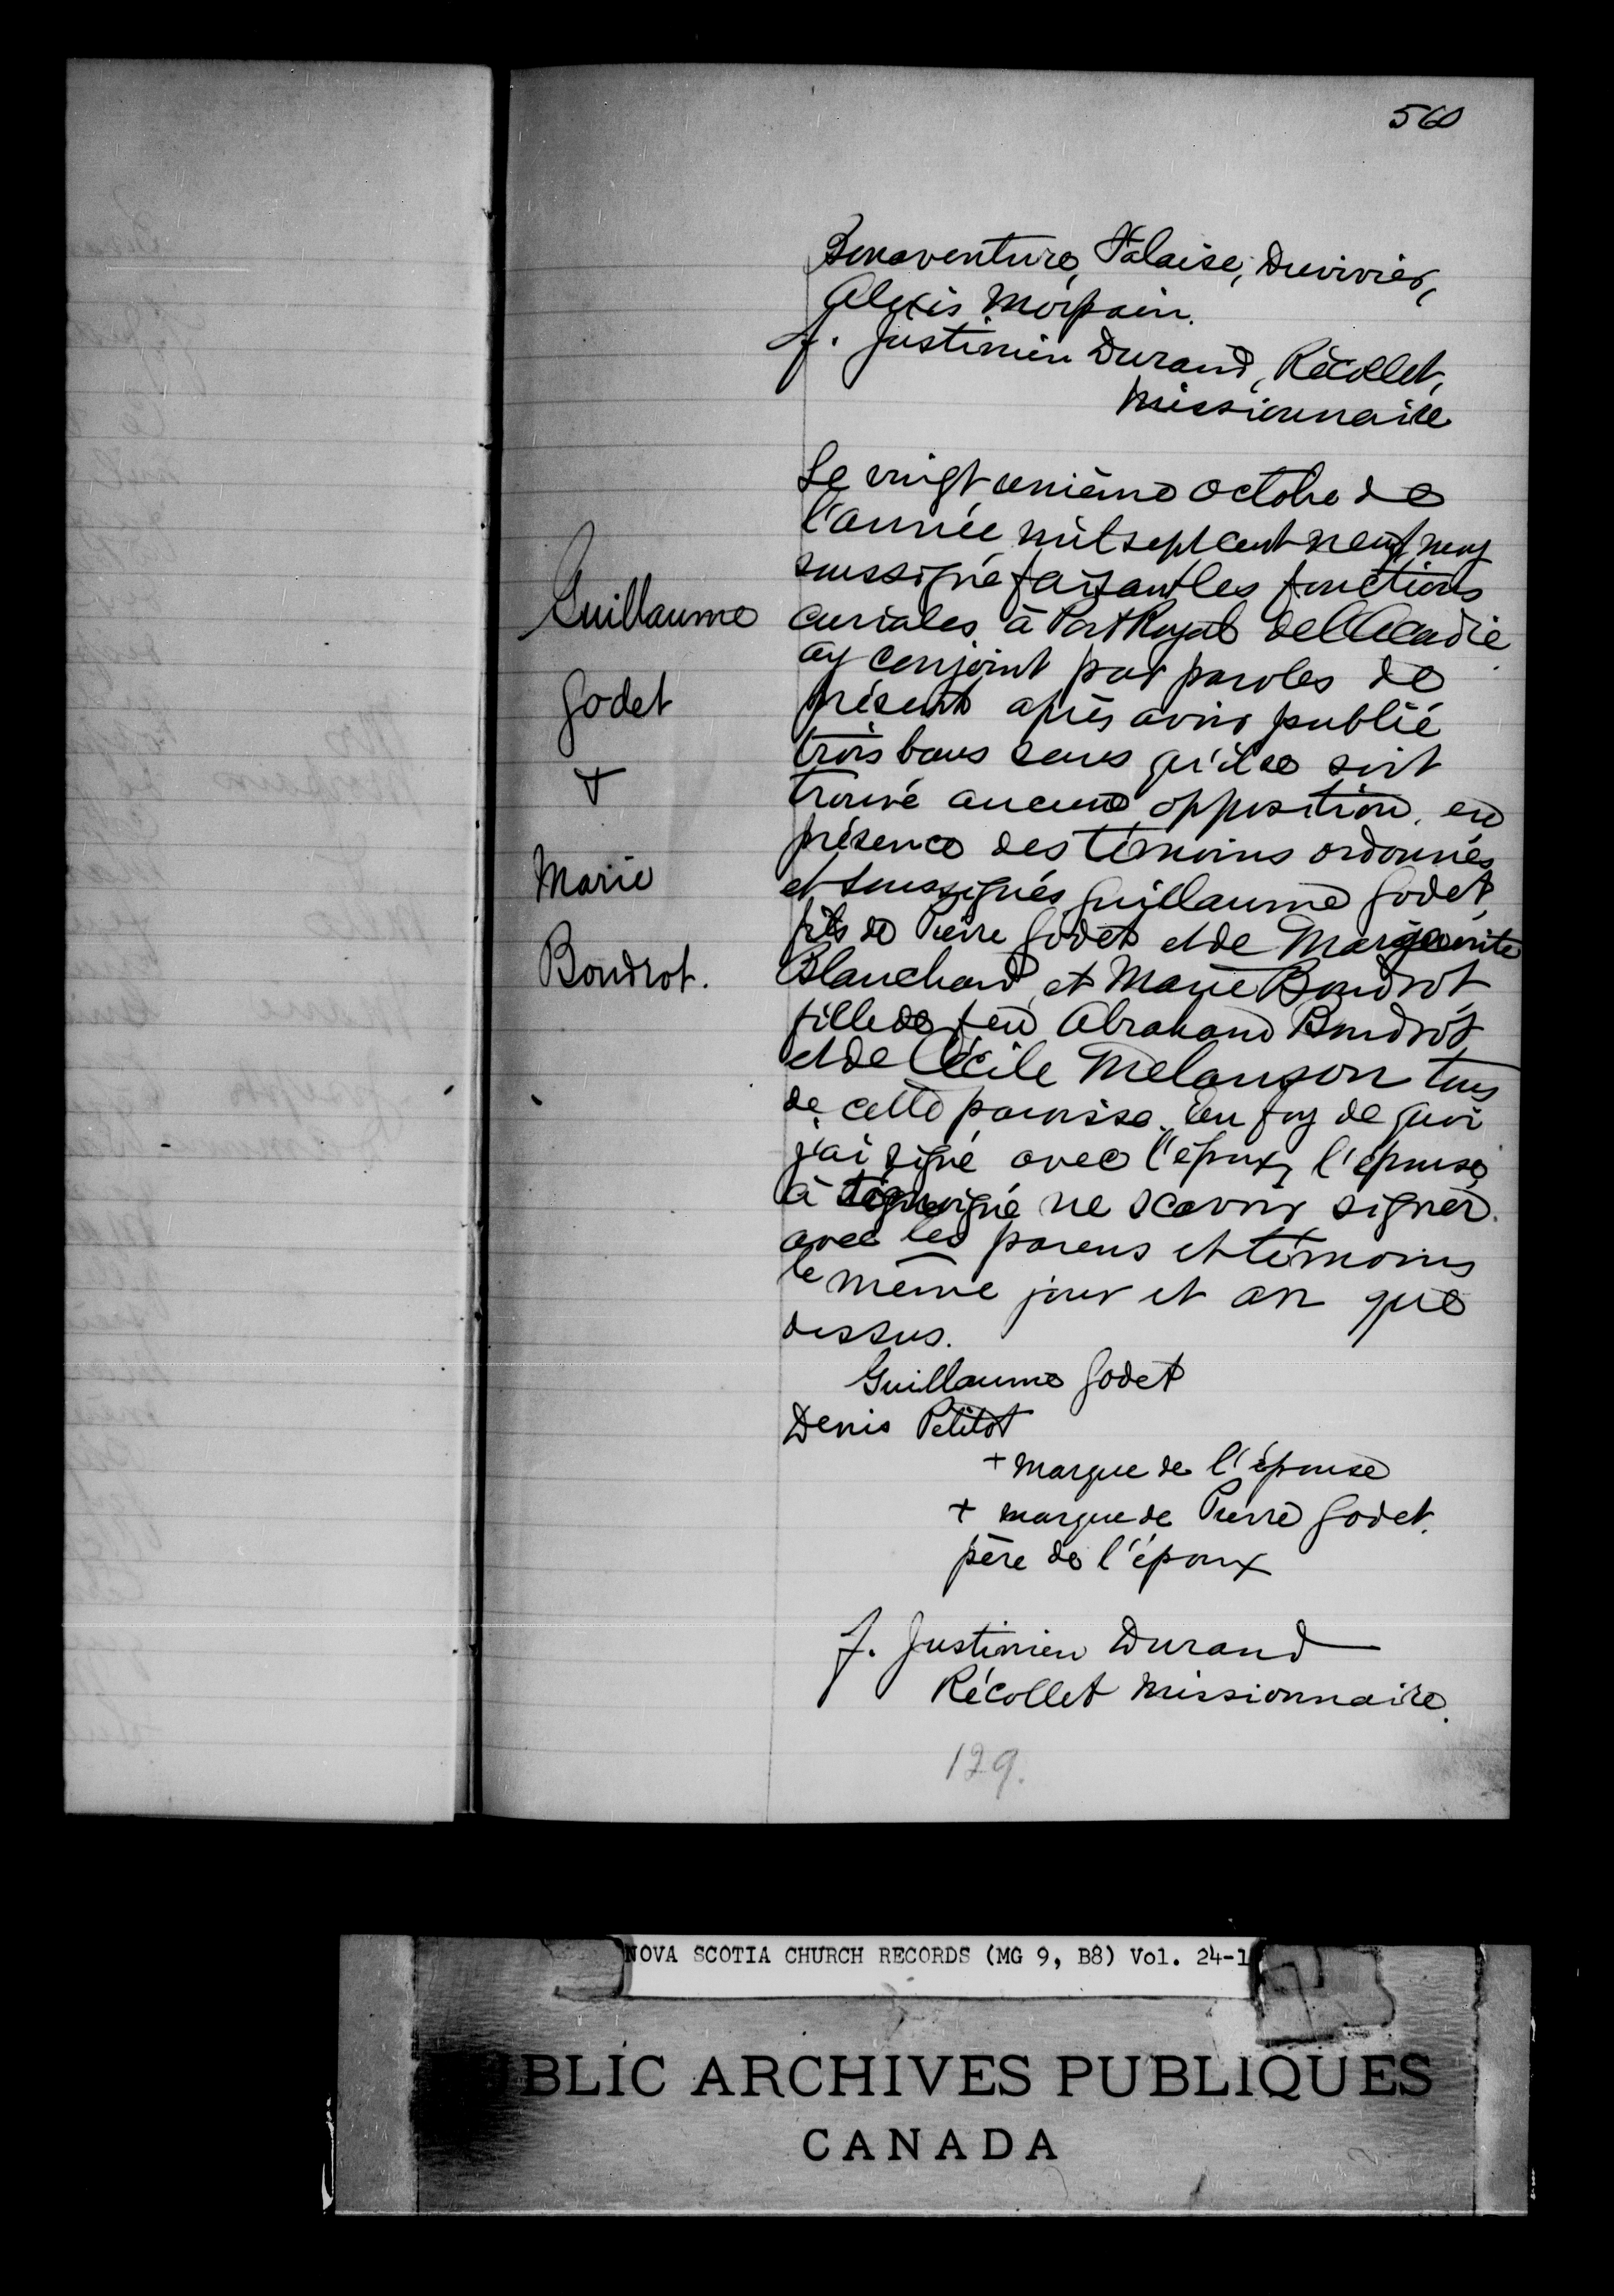 560
Bonaventure, Falaise, Duvivier,
Alexis Morpain.
f. Justinien Durand, Récollet,
Missionnaire
Le vingt unième octobre de
l'année mil sept cent neuf moy
soussigné faisant les fonctions
curiales à Port Royal de l'Acadie
ay conjoint par paroles de
présent après avoir publié
trois bans sans qu'il se soit
trouvé aucune opposition, en
présence des témoins ordonnés
et soussignés Guillaume Godet,
fils de Pierre Godet et de Marguerite
Blanchard, et Marie Boudrot,
fille de feu Abraham Boudrot
et de Cécile Melanson tous
de cette paroisse. En foy de quoi
j'ai signé avec l'époux, l'épouse
a témoigné ne scavoir signer.
avec les parens et témoins
le même jour et an que
dessus.
Guillaume
Godet
+
Marie
Boudrot.
Guillaume Godet
Denis Petitot
+ marque de l'épouse
+ marque de Pierre Godet.
père de l'époux
f. Justinien Durand
Récollet Missionnaire.
129.
NOVA SCOTIA CHURCH RECORDS (MG 9, B8) Vol. 24-1
BLIC ARCHIVES PUBLIQUES
CANADA